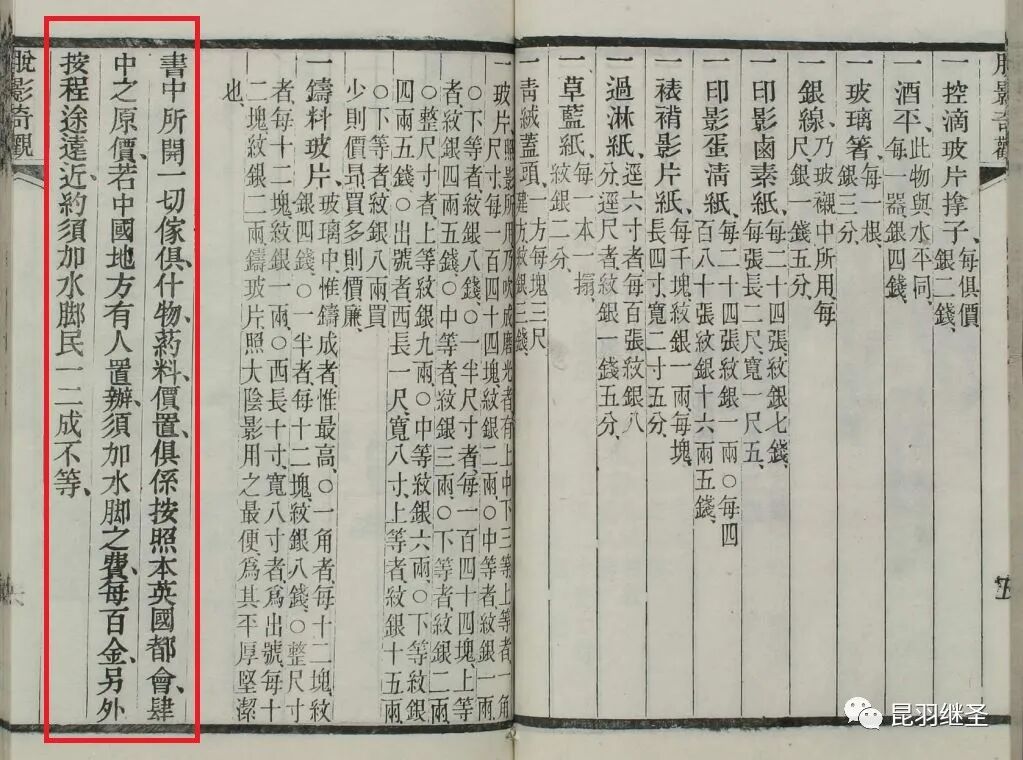 脫影奇觀
一控滴玻片撑子、每俱價
銀二錢、
一酒平、此物與水平同、
每一器銀四錢、
一玻璃箸、每一根、
銀三分、
一銀線、乃玻襯中所用每
尺銀一錢五分、
一印影鹵素紙、每二十四張紋銀七錢、
每張長二尺、寬一尺五、
一印影蛋清紙、每二十四張紋銀一兩○每四
百八十張紋銀十六兩五錢、
一裱褙影片紙、每千塊紋銀一兩每塊
長四寸寬二寸五分、
一過淋紙、逕六寸者每百張紋銀八
分逕尺者紋銀一錢五分、
一草藍紙、每一本一搨、
紋銀二分、
一青絨蓋頭、一方每塊三尺
方紋銀三錢
一玻片、照影所用乃吹成磨光者有上中下三等上等者一角
尺寸每一百四十四塊紋銀二兩、○中等者紋銀一兩、
○下等者紋銀八錢、○一半尺寸者每一百四十四塊、上等
者紋銀四兩五錢、○中等者紋銀三兩、○下等者紋銀二兩、
○整尺寸者上等紋銀九兩、○中等紋銀六兩、○下等紋銀
四兩五錢、○出號者西長一尺、寬八寸、上等者紋銀十五兩、
○下等者紋銀八兩、買
少則價昻買多則價廉、
一鑄料玻片、玻璃中、惟鑄成者、惟最高、○一角者、每十二塊、紋
銀四錢、○一半者、每十二塊、紋銀八錢、○整尺寸
者、每十二塊、紋銀一兩、○西長十寸、寬八寸者、爲出號、每十
二塊、紋銀二兩、鑄玻片、照大陰影用之最便、爲其平厚堅潔
也、
書中所開一切傢俱、什物、葯料、價置、俱係按照本英國都會、肆
中之原價、若中國地方有人置辦、須加水脚之費、每百金、另外
按程途遠近、約須加水脚民一二成不等、
脫影奇觀
昆羽继圣